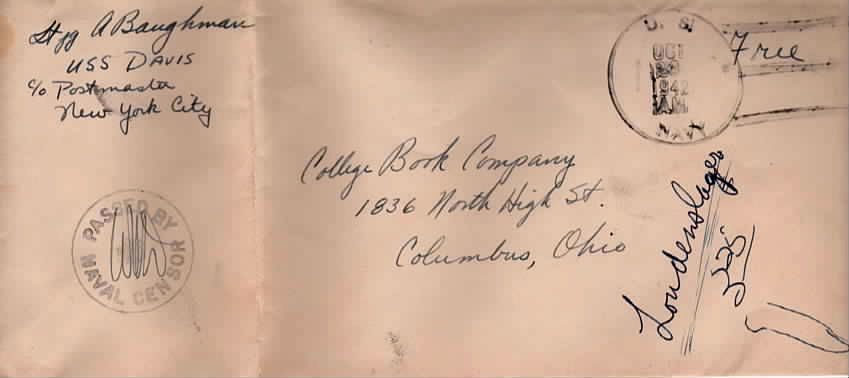 Lt jg A Baughman
USS DAVIS
c/o Postmaster
New York City
U. S.
OCT
1942
AM
NAVY
Free
College Book Company
1836 North High St.
Columbus, Ohio
PASSED BY
NAVAL CENSOR
Loudenslager